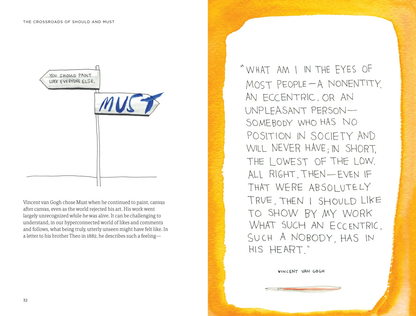 THE CROSSROADS OF SHOULD AND MUST
YOU SHOULD PAINT
LIKE EVERYONE ELSE.
MUST
Vincent van Gogh chose Must when he continued to paint, canvas
after canvas, even as the world rejected his art. His work went
largely unrecognized while he was alive. It can be challenging to
understand, in our hyperconnected world of likes and comments
and follows, what being truly utterly unseen might have felt like. In
a letter to his brother Theo in 1882, he describes such a feeling—
"WHAT AM I IN THE EYES OF
MOST PEOPLE—A NONENTITY,
AN ECCENTRIC, OR AN
UNPLEASANT PERSON—
SOMEBODY WHO HAS NO
POSITION IN SOCIETY AND
WILL NEVER HAVE; IN SHORT,
THE LOWEST OF THE LOW.
ALL RIGHT, THEN—EVEN IF
THAT WERE ABSOLUTELY
TRUE, THEN I SHOULD LIKE
TO SHOW BY MY WORK
WHAT SUCH AN ECCENTRIC,
SUCH A NOBODY, HAS IN
HIS HEART."
VINCENT VAN GOGH